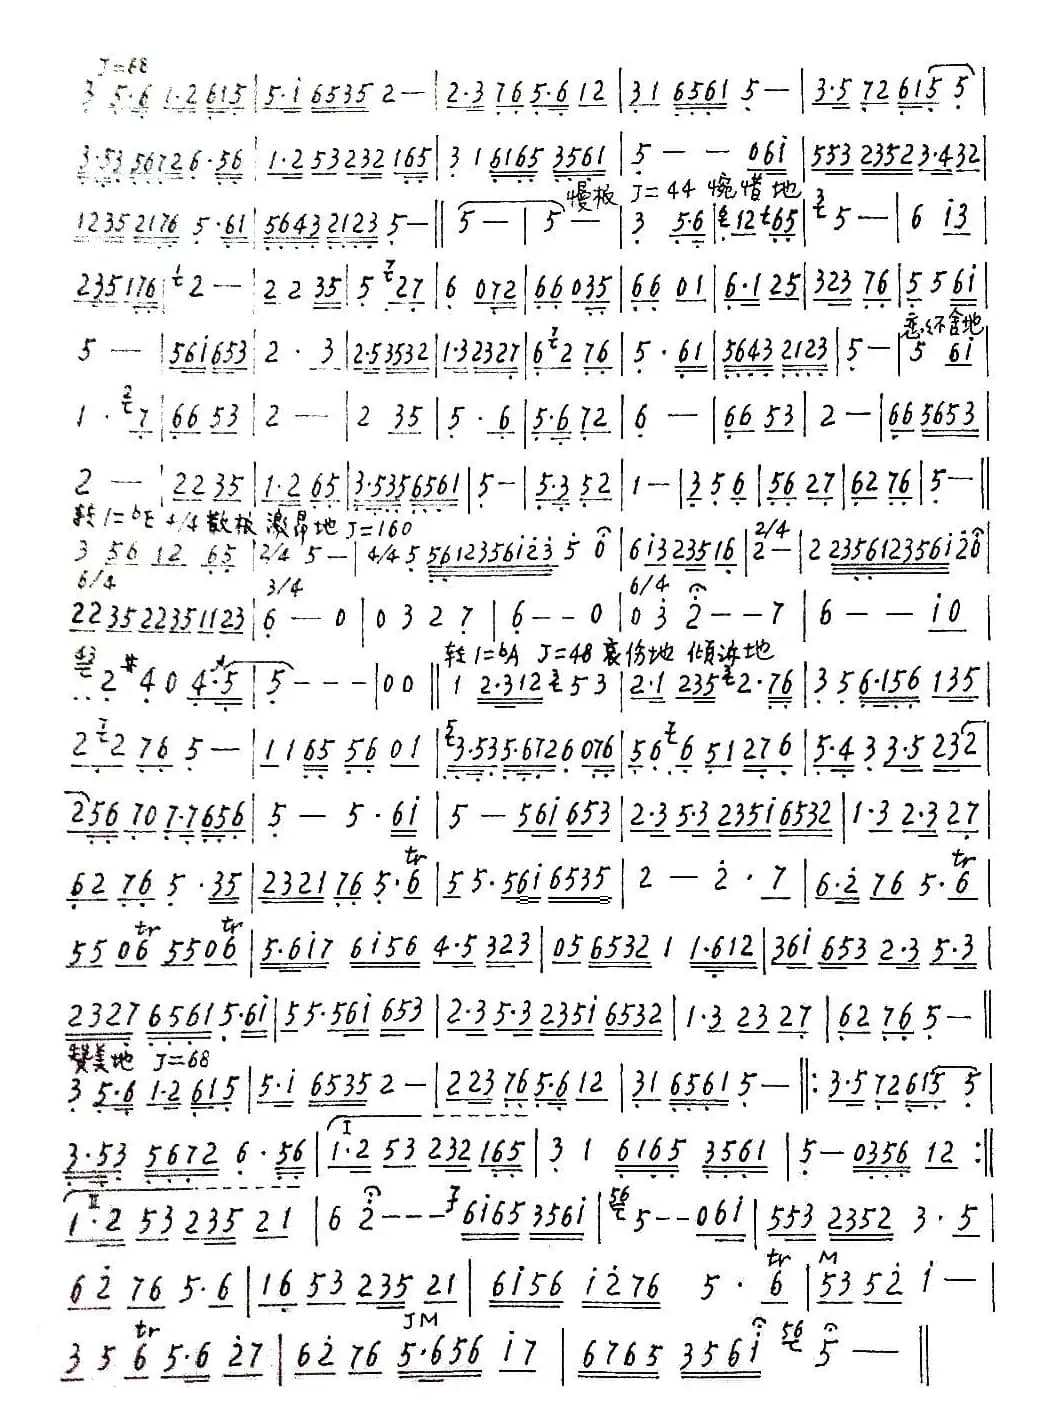 J=68
3 5·6 1·2 615 | 5·i 6535 2— | 2·3 76 5·6 12 | 31 6561 5— | 3·5 72 615 5 |
3·53 5672 6·56 | 1·2 53 232 165 | 3 1 6165 3561 | 5 — — 06i | 553 2352 3·432 |
慢板 J=44 惋惜地
1235 2176 5·61 | 5643 2123 5— || 5 — | 5 — | 3 5·6 | 12 765 | 5 — | 6 i3 |
235176 | 2 — | 2 2 35 | 5 27 | 6 072 | 66 035 | 66 01 | 6·1 25 | 323 76 | 5 5 6i |
5 — | 56i653 | 2 · 3 | 2·53532 | 1·32327 | 6 2 76 | 5 · 61 | 5643 2123 | 5— | 5 6i
1 · 7 | 66 53 | 2 — | 2 35 | 5 · 6 | 5·6 72 | 6 — | 66 53 | 2 — | 66 5653 |
2 — | 22 35 | 1·2 65 | 3·5356561 | 5— | 5·3 52 | 1— | 3 5 6 | 56 27 | 62 76 | 5— ||
转1=bE 4/4 散板 激昂地 J=160
3 56 12 65 | 2/4 5 — | 4/4 5 5612356i23 5 0 | 6i3 235 16 | 2/4 2— | 2 235612356i20 |
6/4 3/4 6/4
22352235 1123 | 6 — — 0 | 0 3 2 7 | 6 — — 0 | 0 3 2 — — 7 | 6 — — i0 |
转1=bA J=48 哀伤地 倾诉地
43 2 #4 0 4·5 | 5 — — — | 00 || 1 2·312 5 3 | 2·1 235 2·76 | 3 5 6·156 135 |
2 2 76 5 — | 1 1 65 56 01 | 3·53 5·6726 076 | 56 6 51 276 | 5·4 3 3·5 232 |
256 70 7·7656 | 5 — 5·6i | 5 — 56i 653 | 2·3 5·3 235i 6532 | 1·3 2·3 27 |
62 76 5·35 | 2321 76 5·6 tr | 5 5·56i 6535 | 2 — 2·7 | 6·2 76 5·6 tr |
55 06 tr 55 06 tr | 5·6i7 6i56 4·5 323 | 05 6532 1 1·612 | 36i 653 2·3 5·3 |
2327 6561 5·6i | 55·56i 653 | 2·3 5·3 235i 6532 | 1·3 23 27 | 62 76 5— ||
赞美地 J=68
3 5·6 1·2 615 | 5·i 6535 2— | 2 23 76 5·6 12 | 31 6561 5— ||: 3·5 72 615 5 |
3·53 5672 6·56 | I 1·2 53 232 165 | 3 1 6165 3561 | 5— 0356 12 :||
II 1·2 53 235 21 | 6 2 — — — 6i65 356i | 56 5 — — 06i | 553 2352 3·5 |
62 76 5·6 | 16 53 235 21 | 6i56 i276 5·6 tr | M 53 52 i — |
3 5 6 tr 5·6 27 | 62 76 JM 5·656 i7 | 6765 356i 56 5 — ||